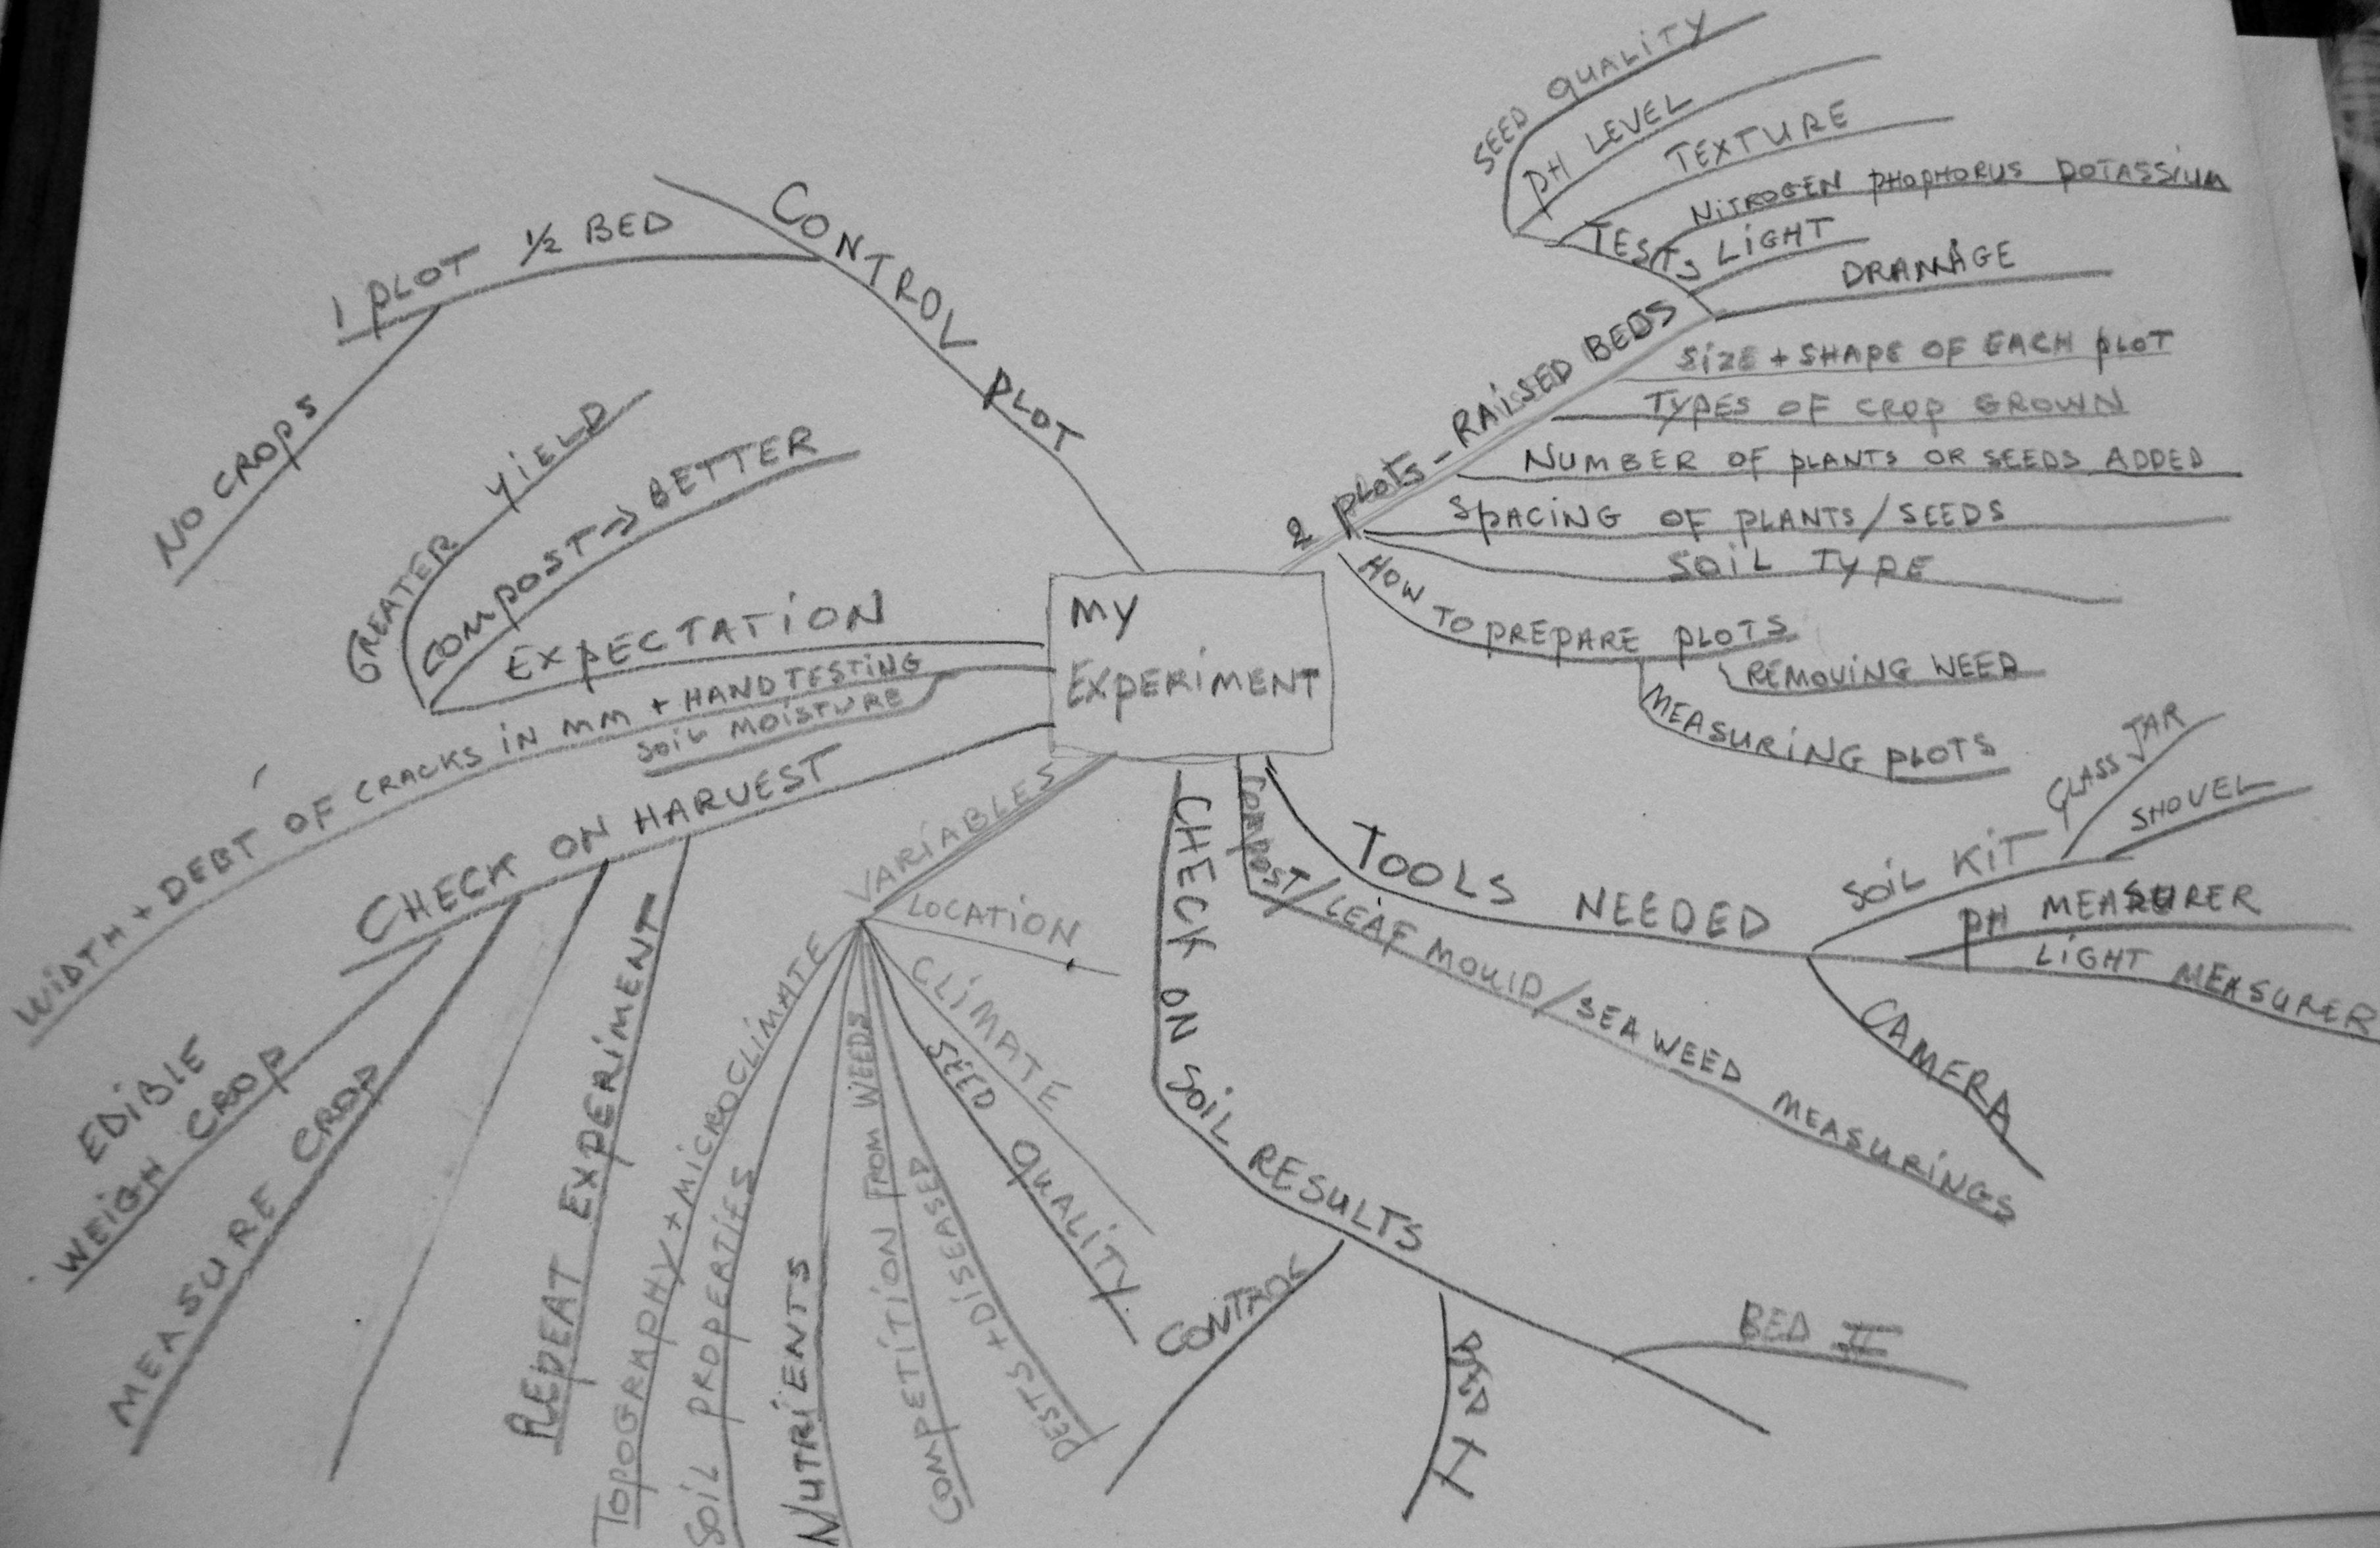 MY
EXPERIMENT
CONTROL PLOT
1 PLOT ½ BED
NO CROPS
2 PLOTS - RAISED BEDS
TESTS
SEED QUALITY
PH LEVEL
TEXTURE
NITROGEN PHOPHORUS POTASSIUM
LIGHT
DRAINAGE
SIZE + SHAPE OF EACH PLOT
TYPES OF CROP GROWN
NUMBER OF PLANTS OR SEEDS ADDED
SPACING OF PLANTS/SEEDS
SOIL TYPE
HOW TO PREPARE PLOTS
REMOVING WEED
MEASURING PLOTS
TOOLS NEEDED
SOIL KIT
GLASS JAR
SHOVEL
PH MEASURER
LIGHT MEASURER
CAMERA
COMPOST/LEAF MOULD/SEA WEED MEASURINGS
CHECK ON SOIL RESULTS
CONTROL
BED I
BED II
VARIABLES
LOCATION
CLIMATE
SEED QUALITY
PESTS + DISEASED
COMPETITION FROM WEEDS
NUTRIENTS
SOIL PROPERTIES
TOPOGRAPHY + MICROCLIMATE
CHECK ON HARVEST
REPEAT EXPERIMENT
MEASURE CROP
EDIBLE
WEIGH CROP
WIDTH + DEBT OF CRACKS IN MM + HANDTESTING
SOIL MOISTURE
EXPECTATION
COMPOST → BETTER
GREATER YIELD